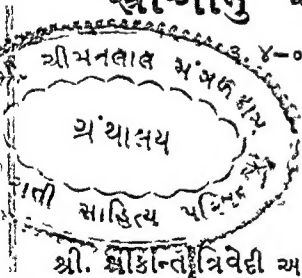 ૩. ૪-૦
ચીમનલાલ મંગળદાસ
ગ્રંથાલય
સાહિત્ય પરિષદ
શ્રી. શ્રીકાન્ત ત્રિવેદી અ